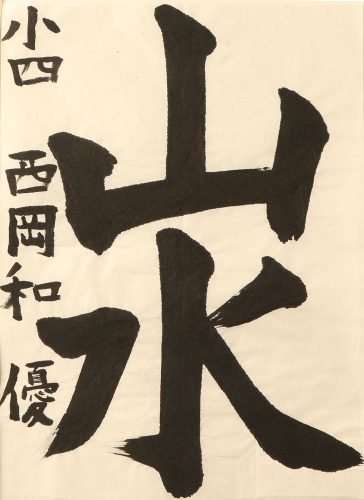 山水
小四 西岡和優